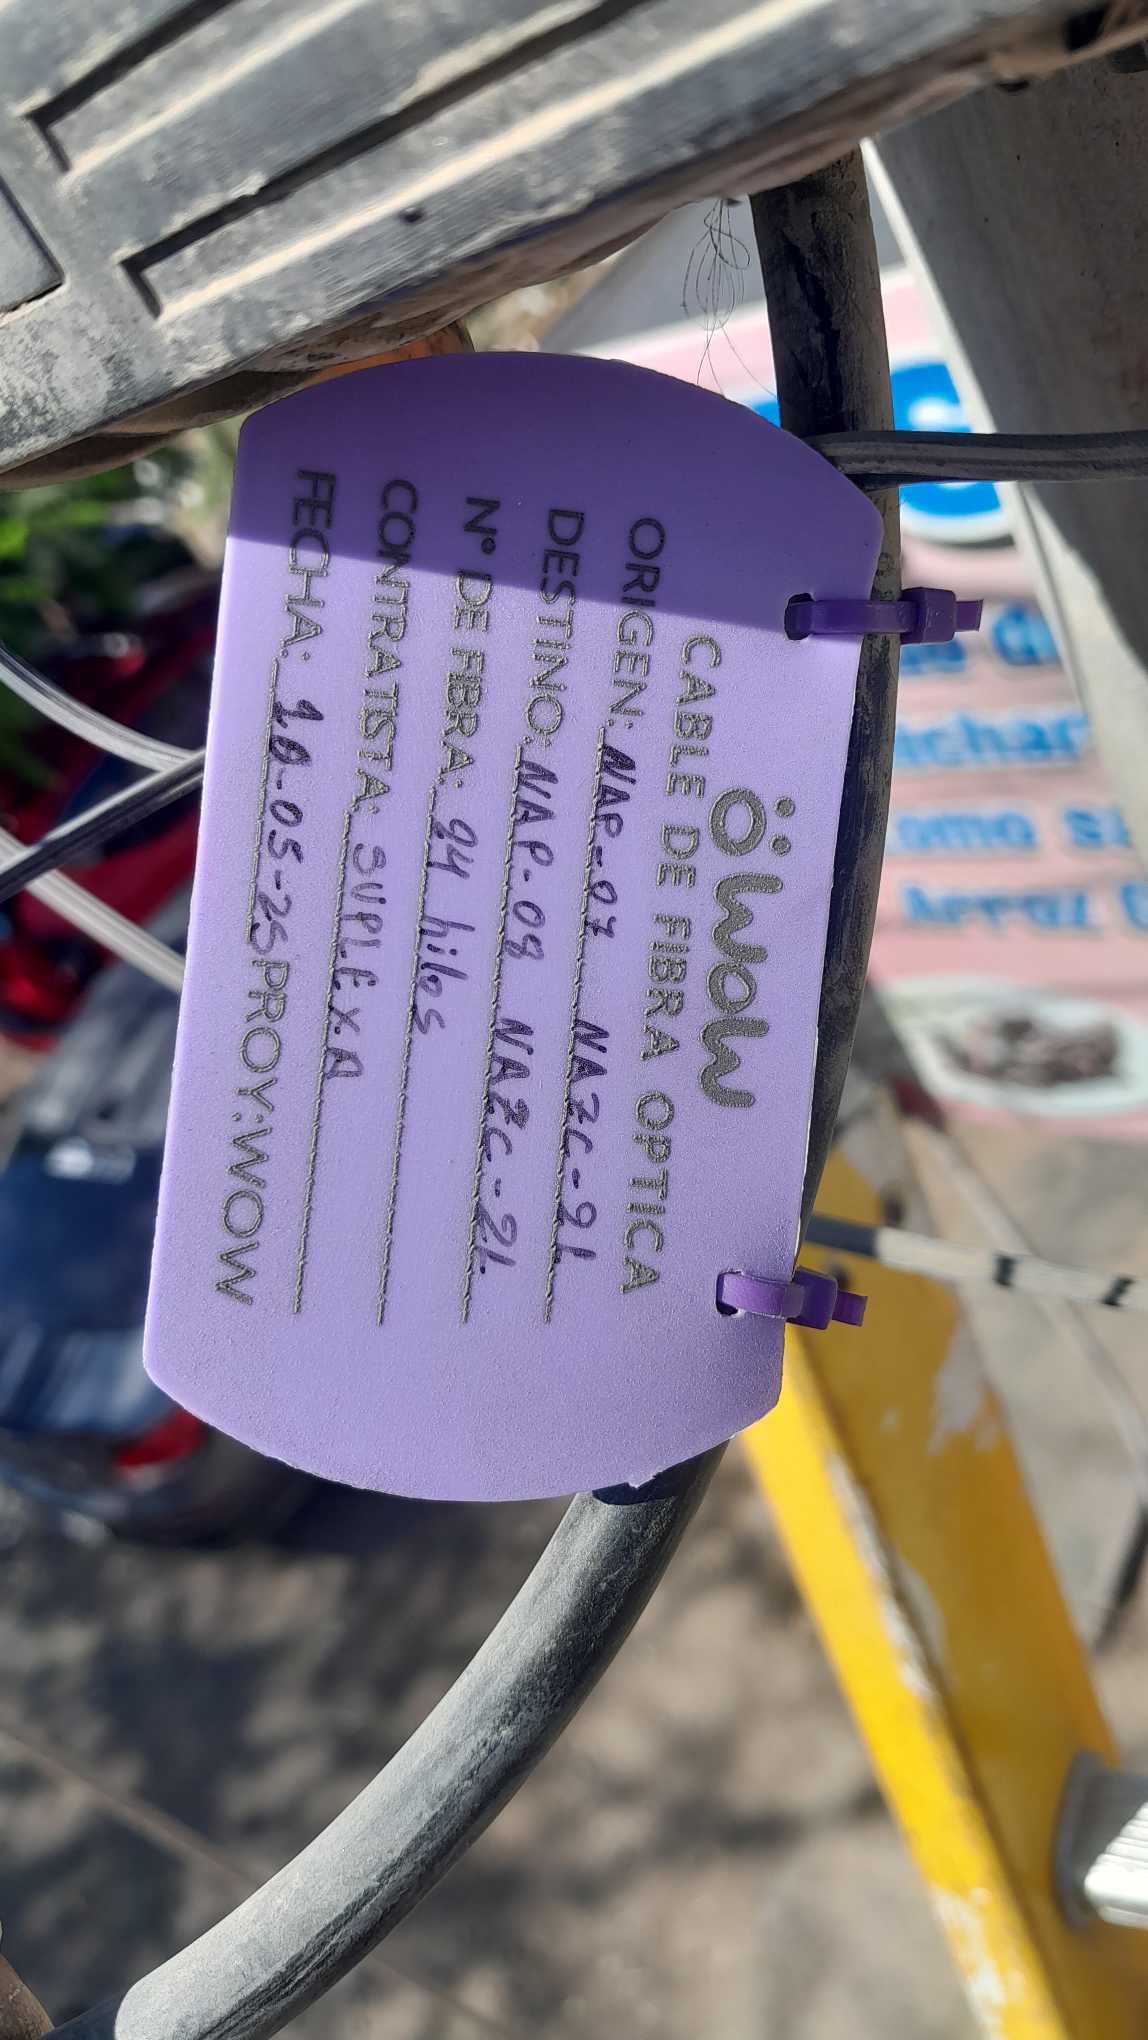 wow
CABLE DE FIBRA OPTICA
ORIGEN: NAP-07 NAZC-21.
DESTINO: NAP-08 NAZC-21.
N° DE FIBRA: 24 hilos
CONTRATISTA: SUPLEXA
FECHA: 10-05-25 PROY: WOW